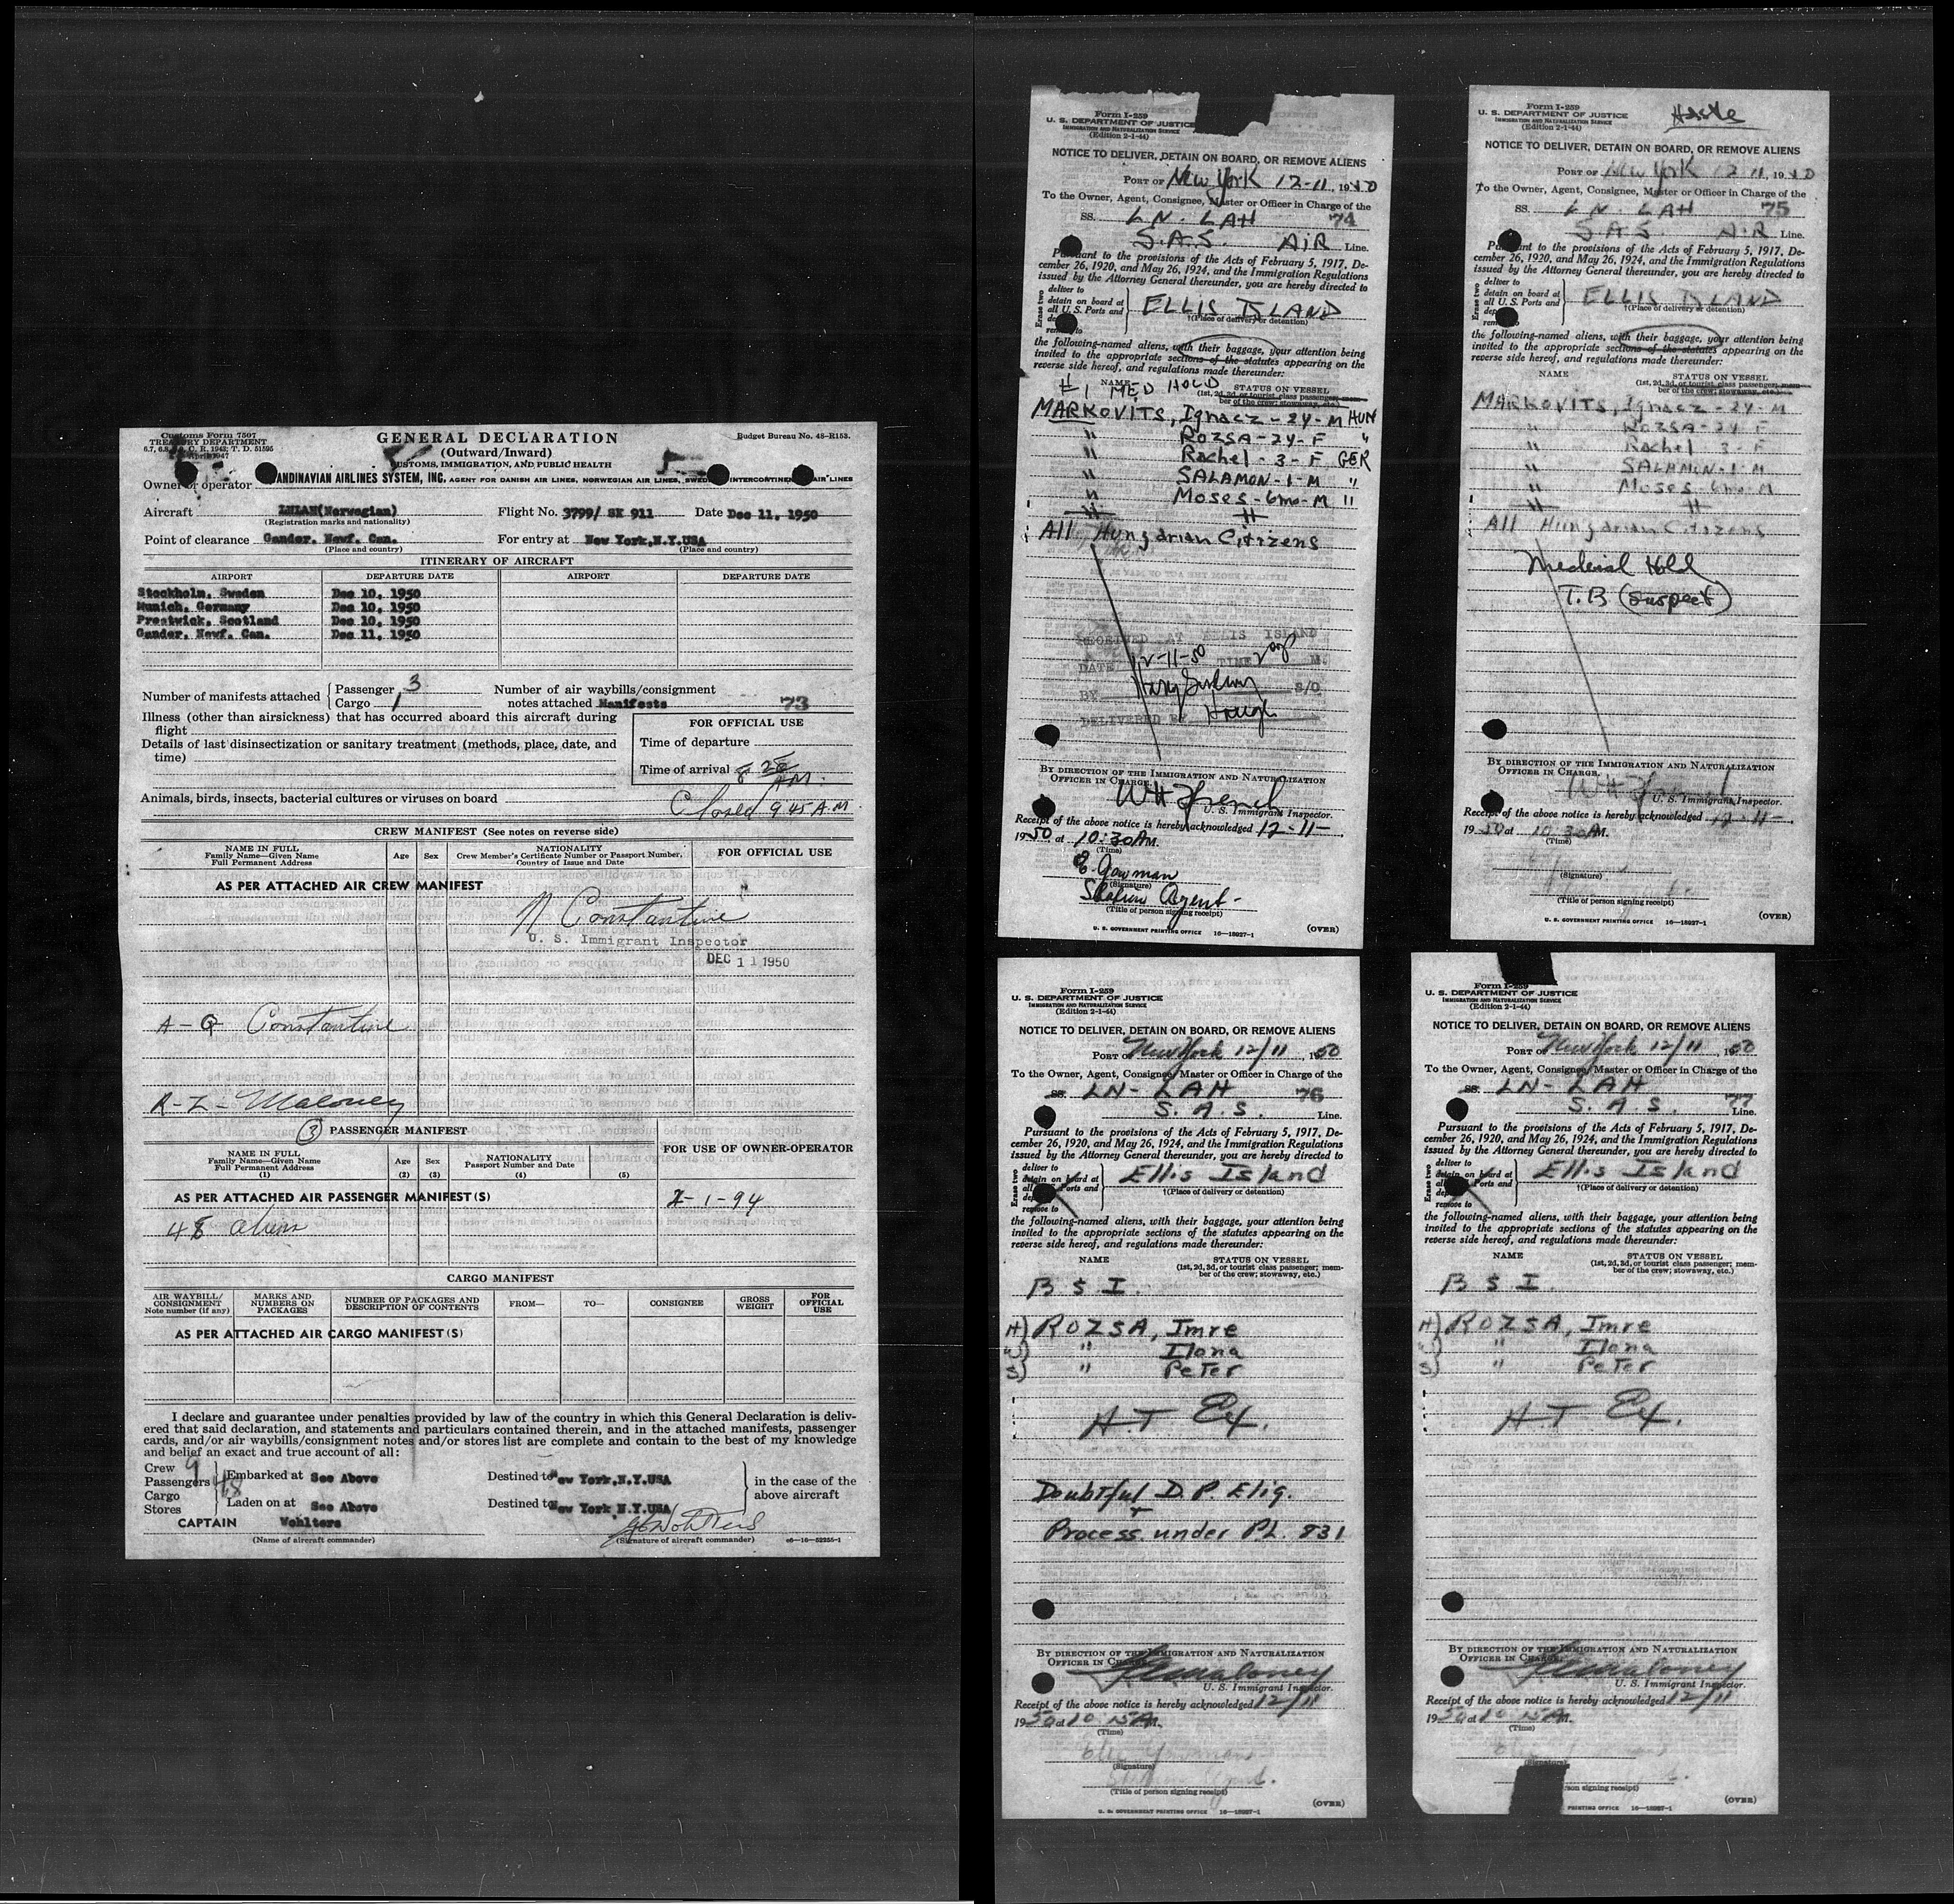 Customs Form 7507
TREASURY DEPARTMENT
6.7, 6.8, C. R. 1943; T. D. 51595
April 1947
GENERAL DECLARATION
(Outward/Inward)
CUSTOMS, IMMIGRATION, AND PUBLIC HEALTH
Budget Bureau No. 48-R153.
Owner or operator SCANDINAVIAN AIRLINES SYSTEM, INC. AGENT FOR DANISH AIR LINES, NORWEGIAN AIR LINES, SWEDISH INTERCONTINENTAL AIR LINES
Aircraft LNLAH(Norwegian) Flight No. 3799/ SK 911 Date Dec 11, 1950
(Registration marks and nationality)
Point of clearance Gander, Newf. Can. For entry at New York,N.Y.USA
(Place and country) (Place and country)
ITINERARY OF AIRCRAFT
AIRPORT DEPARTURE DATE AIRPORT DEPARTURE DATE
Stockholm, Sweden Dec 10, 1950
Munich, Germany Dec 10, 1950
Prestwick, Scotland Dec 10, 1950
Gander, Newf. Can. Dec 11, 1950
Number of manifests attached Passenger 3 Cargo 1 Number of air waybills/consignment notes attached Manifests 73
Illness (other than airsickness) that has occurred aboard this aircraft during flight
FOR OFFICIAL USE
Details of last disinsectization or sanitary treatment (methods, place, date, and time)
Time of departure
Time of arrival 8 25 AM.
Animals, birds, insects, bacterial cultures or viruses on board
Closed 9 45 A.M
CREW MANIFEST (See notes on reverse side)
NAME IN FULL
Family Name—Given Name
Full Permanent Address
Age Sex
NATIONALITY
Crew Member's Certificate Number or Passport Number,
Country of Issue and Date
FOR OFFICIAL USE
AS PER ATTACHED AIR CREW MANIFEST
N Constantine
U. S. Immigrant Inspector
DEC 11 1950
A-G Constantine
R-Z- Maloney
(3) PASSENGER MANIFEST
NAME IN FULL
Family Name—Given Name
Full Permanent Address
(1)
Age
(2)
Sex
(3)
NATIONALITY
Passport Number and Date
(4) (5)
FOR USE OF OWNER-OPERATOR
AS PER ATTACHED AIR PASSENGER MANIFEST(S)
1-94
48 aliens
CARGO MANIFEST
AIR WAYBILL/CONSIGNMENT Note number (if any)
MARKS AND NUMBERS ON PACKAGES
NUMBER OF PACKAGES AND DESCRIPTION OF CONTENTS
FROM— TO— CONSIGNEE GROSS WEIGHT FOR OFFICIAL USE
AS PER ATTACHED AIR CARGO MANIFEST(S)
I declare and guarantee under penalties provided by law of the country in which this General Declaration is deliv-
ered that said declaration, and statements and particulars contained therein, and in the attached manifests, passenger
cards, and/or air waybills/consignment notes and/or stores list are complete and contain to the best of my knowledge
and belief an exact and true account of all:
Crew 9
Passengers 48
Cargo
Stores
Embarked at See Above Destined to New York,N.Y.USA
Laden on at See Above Destined to New York N.Y.USA
in the case of the above aircraft
CAPTAIN Wohlters
(Name of aircraft commander) (Signature of aircraft commander) c6—16—52255-1
Form I-259
U. S. DEPARTMENT OF JUSTICE
IMMIGRATION AND NATURALIZATION SERVICE
(Edition 2-1-44)
NOTICE TO DELIVER, DETAIN ON BOARD, OR REMOVE ALIENS
PORT OF New York 12-11, 1950
To the Owner, Agent, Consignee, Master or Officer in Charge of the
SS. LN. LAH 74
S.A.S. AIR Line.
Pursuant to the provisions of the Acts of February 5, 1917, De-
cember 26, 1920, and May 26, 1924, and the Immigration Regulations
issued by the Attorney General thereunder, you are hereby directed to
Erase two
deliver to
detain on board at
all U.S. Ports and
remove to
ELLIS ISLAND
†(Place of delivery or detention)
the following-named aliens, with their baggage, your attention being
invited to the appropriate sections of the statutes appearing on the
reverse side hereof, and regulations made thereunder:
NAME STATUS ON VESSEL
(1st, 2d, 3d, or tourist class passenger; mem-
ber of the crew; stowaway, etc.)
#1 MED HOLD
MARKOVITS, Ignacz - 24 - M HUN
" ROZSA - 24 - F "
" Rachel - 3 - F GER
" SALAMON - 1 - M "
" Moses - 6mo - M "
All Hungarian Citizens
RECEIVED AT ELLIS ISLAND
DATE 12-11-50 TIME M.
BY S/O
DELIVERED BY Hough
BY DIRECTION OF THE IMMIGRATION AND NATURALIZATION
OFFICER IN CHARGE.
WH French
U. S. Immigrant Inspector.
Receipt of the above notice is hereby acknowledged 12-11-
1950 at 10:30 AM.
(Time)
E. Gowman
(Signature)
Station Agent-
(Title of person signing receipt)
U. S. GOVERNMENT PRINTING OFFICE 16—18027-1
(OVER)
Form I-259
U. S. DEPARTMENT OF JUSTICE
IMMIGRATION AND NATURALIZATION SERVICE
(Edition 2-1-44)
NOTICE TO DELIVER, DETAIN ON BOARD, OR REMOVE ALIENS
PORT OF New York 12 11, 1950
To the Owner, Agent, Consignee, Master or Officer in Charge of the
SS. LN LAH 75
S.A.S. AIR Line.
Pursuant to the provisions of the Acts of February 5, 1917, De-
cember 26, 1920, and May 26, 1924, and the Immigration Regulations
issued by the Attorney General thereunder, you are hereby directed to
Erase two
deliver to
detain on board at
all U. S. Ports and
ELLIS ISLAND
†(Place of delivery or detention)
the following-named aliens, with their baggage, your attention being
invited to the appropriate sections of the statutes appearing on the
reverse side hereof, and regulations made thereunder:
NAME STATUS ON VESSEL
(1st, 2d, 3d, or tourist class passenger; mem-
ber of the crew; stowaway, etc.)
MARKOVITS, Ignacz - 24 - M
" ROZSA - 24 F
" Rachel 3 - F
" SALAMON - 1 - M
" Moses - 6mo - M
All Hungarian Citizens
Medical Hold
T.B (suspect)
BY DIRECTION OF THE IMMIGRATION AND NATURALIZATION
OFFICER IN CHARGE.
WH French
U. S. Immigrant Inspector.
Receipt of the above notice is hereby acknowledged 12-11-
1950 at 10 30 AM.
(Time)
(Signature)
(Title of person signing receipt)
U. S. GOVERNMENT PRINTING OFFICE 16—18027-1
(OVER)
Form I-259
U. S. DEPARTMENT OF JUSTICE
IMMIGRATION AND NATURALIZATION SERVICE
(Edition 2-1-44)
NOTICE TO DELIVER, DETAIN ON BOARD, OR REMOVE ALIENS
PORT OF New York 12/11, 1950
To the Owner, Agent, Consignee, Master or Officer in Charge of the
SS. LN- LAH 76
S. A. S. Line.
Pursuant to the provisions of the Acts of February 5, 1917, De-
cember 26, 1920, and May 26, 1924, and the Immigration Regulations
issued by the Attorney General thereunder, you are hereby directed to
Erase two
deliver to
detain on board at
all U. S. Ports and
remove to
Ellis Island
†(Place of delivery or detention)
the following-named aliens, with their baggage, your attention being
invited to the appropriate sections of the statutes appearing on the
reverse side hereof, and regulations made thereunder:
NAME STATUS ON VESSEL
(1st, 2d, 3d, or tourist class passenger; mem-
ber of the crew; stowaway, etc.)
B S I.
H) ROZSA, Imre
W) " Ilona
S) " Peter
H-T Ex.
Doubtful D.P. Elig.
+
Process under P.L. 831
BY DIRECTION OF THE IMMIGRATION AND NATURALIZATION
OFFICER IN CHARGE.
Maloney
U. S. Immigrant Inspector.
Receipt of the above notice is hereby acknowledged 12/11
1950 at 10 15 AM.
(Time)
(Signature)
(Title of person signing receipt)
U. S. GOVERNMENT PRINTING OFFICE 16—18027-1
(OVER)
Form I-259
U. S. DEPARTMENT OF JUSTICE
IMMIGRATION AND NATURALIZATION SERVICE
(Edition 2-1-44)
NOTICE TO DELIVER, DETAIN ON BOARD, OR REMOVE ALIENS
PORT OF New York 12/11, 1950
To the Owner, Agent, Consignee, Master or Officer in Charge of the
SS. LN- LAH 77
S. A. S. Line.
Pursuant to the provisions of the Acts of February 5, 1917, De-
cember 26, 1920, and May 26, 1924, and the Immigration Regulations
issued by the Attorney General thereunder, you are hereby directed to
Erase two
deliver to
detain on board at
all U. S. Ports and
remove to
Ellis Island
†(Place of delivery or detention)
the following-named aliens, with their baggage, your attention being
invited to the appropriate sections of the statutes appearing on the
reverse side hereof, and regulations made thereunder:
NAME STATUS ON VESSEL
(1st, 2d, 3d, or tourist class passenger; mem-
ber of the crew; stowaway, etc.)
B S I.
H) ROZSA, Imre
W) " Ilona
S) " Peter
H-T Ex.
BY DIRECTION OF THE IMMIGRATION AND NATURALIZATION
OFFICER IN CHARGE.
Maloney
U. S. Immigrant Inspector.
Receipt of the above notice is hereby acknowledged 12/11
1950 at 10 15 AM.
(Time)
(Signature)
son signing receipt)
PRINTING OFFICE 16—18027-1
(OVER)